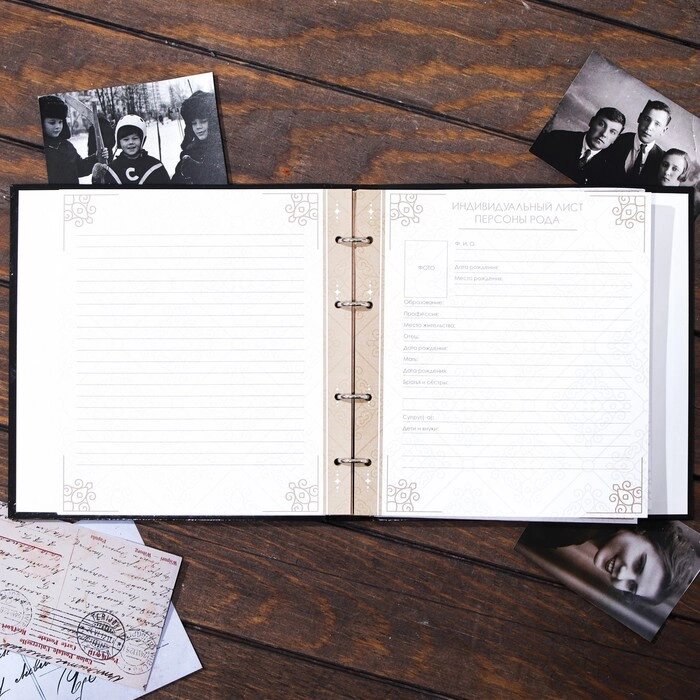 C
ИНДИВИДУАЛЬНЫЙ ЛИСТ
ПЕРСОНЫ РОДА
ФОТО
Ф. И. О.
Дата рождения:
Место рождения:
Образование:
Профессия:
Место жительства:
Отец:
Дата рождения:
Мать:
Дата рождения:
Братья и сёстры:
Супруг(-а):
Дети и внуки: